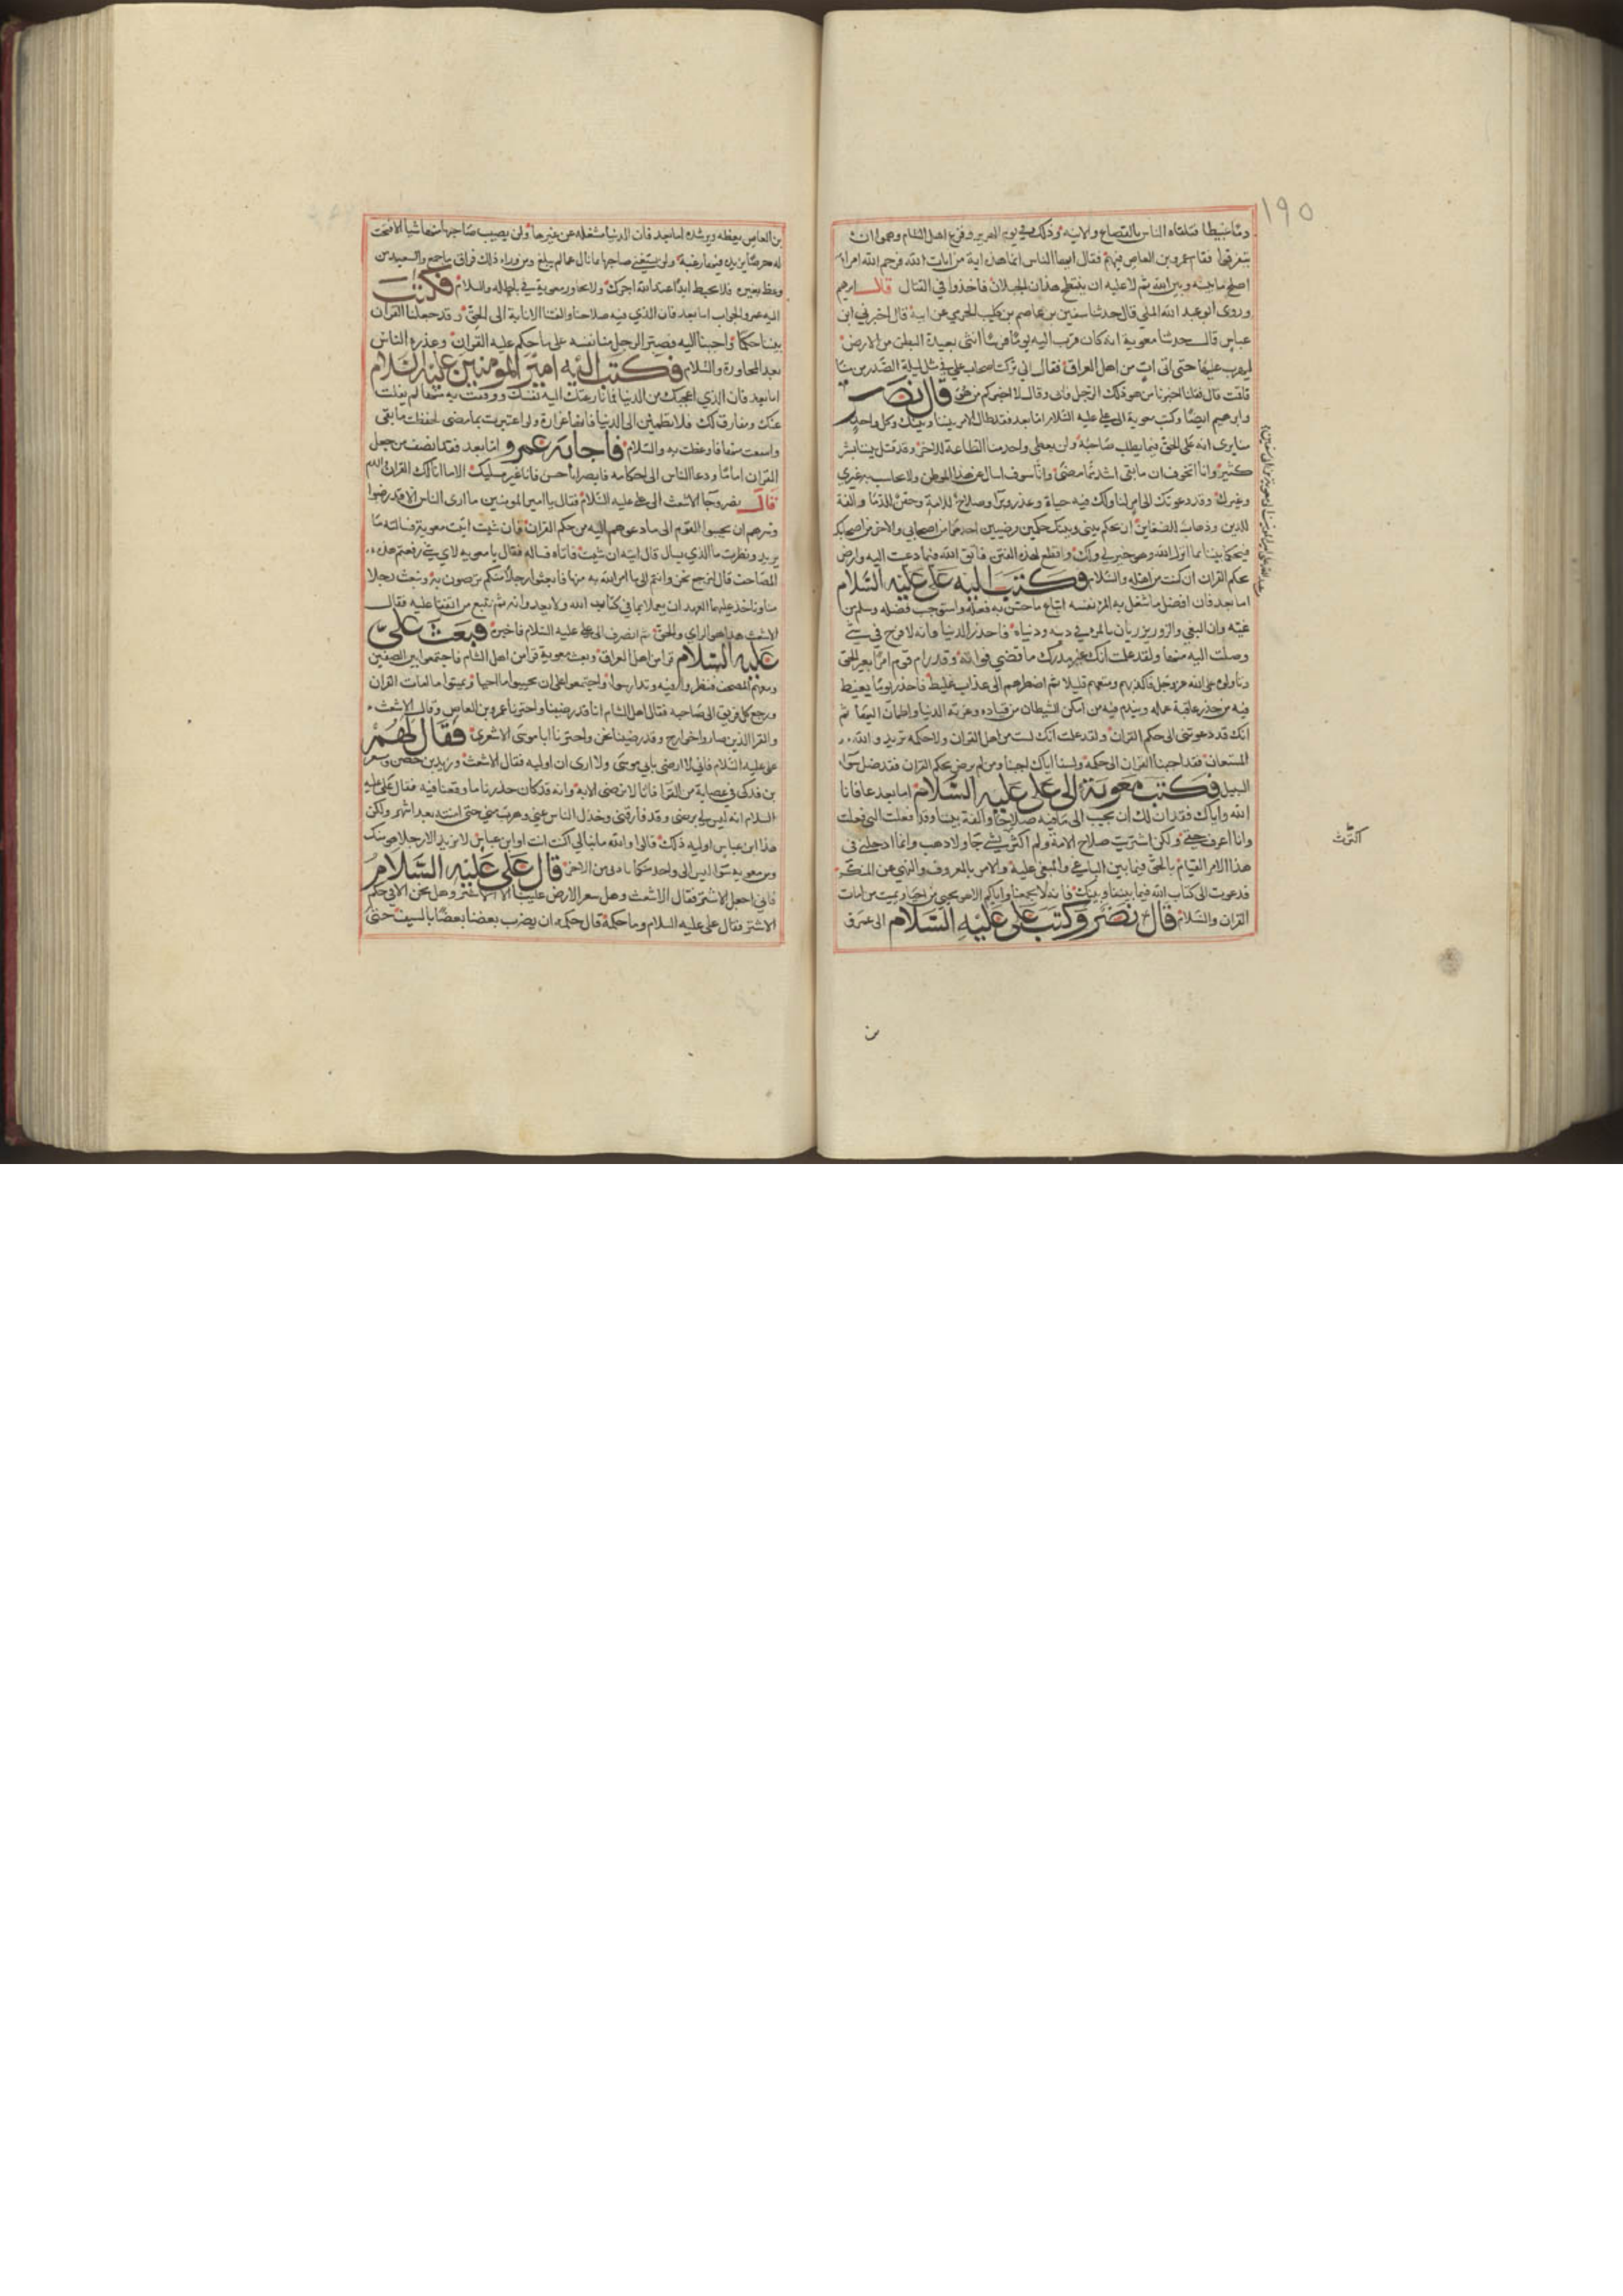 ١٩٥
دما عبيطا فتلقاه الناس بالقصاع والانيه وذلك في يوم الهرير وفزع اهل الشام وهموا ان
يتفرقوا فقام عمرو بن العاص فيهم فقال ايها الناس انما هذه اية من ايات الله فرحم الله امرا
اصلح ما بينه وبين الله ثم لا عليه ان ينتطح هذان الجبلان فاخذوا في القتال قال ابرهيم
وروى ابو عبد الله المكي قال حدثنا سفين بن عاصم بن كليب الجرمي عن ابيه قال اخبرني ابن
عباس قال حدثنا معوية انه كان قرب اليه يوما فرسا انثى بعيدة البطن من الارض
ليهرب عليها حتى اتى ات من اهل العراق فقال اني تركت اصحاب علي في مثل ليلة الصدر من منا
فاقمت قال فقلنا اخبرنا من هو ذلك الرجل فابى وقال لا اخبركم من هو قال نصر
وابرهيم ايضا وكتب معوية الى علي عليه السلام اما بعد فقد طال الامر بيننا وبينك وكل واحد
منا يرى انه على الحق فيما يطلب صاحبه ولن يعطي واحد منا الطاعة للاخر وقد قتل بيننا بشر
كثير وانا اتخوف ان ما بقى اشد مما مضى وانا سوف اسال عن هذا الموطن ولا يحاسب به غيري
وغيرك وقد دعوتك الى امر لنا ولك فيه حياة وعذر وبرا وصلاح للامة وحقن للدما والفة
للدين وذهاب الضغاين ان يحكم بيني وبينك حكمين رضيين احدهما من اصحابي والاخر من اصحابك
فيحكما بيننا بما انزل الله وهو خير لي ولك واقطع لهذه الفتن فاتق الله فيما دعت اليه وارض
بحكم القران ان كنت من اهله والسلام فكتب اليه علي عليه السلام
اما بعد فان افضل ما شغل به المرء نفسه اتباع ما حسن به فعله واستوجب فضله وسلم من
عيبه وان البغي والزور يزريان بالمرء في دينه ودنياه فاحذر الدنيا فانه لا فرح في شي
وصلت اليه منها ولقد علمت انك غير مدرك ما قضي فواته وقد رام قوم امرا بغير الحق
وتاولوه على الله عز وجل فاكذبهم ومتعهم قليلا ثم اضطرهم الى عذاب غليظ فاحذر يوما يغتبط
فيه من حمد عاقبة عمله ويندم فيه من امكن الشيطان من قياده وغرته الدنيا واطمان اليها ثم
انك قد دعوتني الى حكم القران ولقد علمت انك لست من اهل القران ولا حكمه تريد والله
المستعان فقد اجبنا القران الى حكمه ولسنا اياك اجبنا ومن لم يرض بحكم القران فقد ضل سواء
السبيل فكتب معوية الى علي عليه السلام اما بعد عافانا
الله واياك فقد ان لك ان تجيب الى ما فيه صلاحنا والفة بيننا وقد فعلت الذي فعلت
وانا اعرف حقي ولكن اشتريت صلاح الامة ولم اكثر بشي جا ولا ذهب وانما ادخلني في
هذا الامر القيام بالحق فيما بين الباغي والمبغى عليه والامر بالمعروف والنهي عن المنكر
فدعوت الى كتاب الله فيما بيننا وبينك فانه لا يجمعنا واياكم الا هو يحيي من احيا ويميت من امات
القران والسلام قال نصر وكتب علي عليه السلام الى عمرو
بن
بن العاص يعظه ويرشده اما بعد فان الدنيا مشغلة عن غيرها ولن يصيب صاحبها منها شيا الا فتحت
له حرصا يزيده فيها رغبة ولن يستغني صاحبها بما نال عما لم يبلغ ومن وراء ذلك فراق ما جمع والسعيد من
وعظ بغيره فلا تحبط ابا عبد الله اجرك ولا تجاور معوية في باطله والسلام فكتب
اليه عمرو الجواب اما بعد فان الذي فيه صلاحنا والفتنا الانابة الى الحق وقد جعلنا القران
بيننا حكما واجبنا اليه فصبر الرجل منا نفسه على ما حكم عليه القران وعذره الناس
بعد المحاورة والسلام فكتب اليه امير المؤمنين عليه السلام
اما بعد فان الذي اعجبك من الدنيا فما نازعتك اليه نفسك ووثقت به منها لم يفلت
عنك ومفارق لك فلا تطمئن الى الدنيا فانها غرارة ولو اعتبرت بما مضى لحفظت ما بقى
وانتفعت منها فاوعظت به والسلام فاجابه عمرو اما بعد فقد انصف من جعل
القران اماما ودعا الناس الى احكامه فاصبر ابا حسن فانا غير منيليك الا ما انالك القران والسلام
قال نصر وجا الاشعث الى علي عليه السلام فقال يا امير المومنين ما ارى الناس الا قد رضوا
وسرهم ان يجيبوا القوم الى ما دعوهم اليه من حكم القران فان شيت اتيت معوية فسالته ما
يريد ونظرت ما الذي يسال قال ايته ان شيت فاتاه فساله فقال يا معوية لاي شي رفعتم هذه
المصاحف قال لنرجع نحن وانتم الى ما امر الله به منها فابعثوا رجلا منكم ترضون به ونبعث رجلا
منا وناخذ عليهما العهد ان يعملا بما في كتاب الله ولا يعدوانه ثم نتبع ما اتفقا عليه فقال
الاشعث هذا هو الراي والحق ثم انصرف الى علي عليه السلام فاخبره فبعث علي
عليه السلام قرا من اهل العراق وبعث معوية قرا من اهل الشام فاجتمعوا بين الصفين
ومعهم المصحف فنظروا فيه وتدارسوا واجتمعوا على ان يحيوا ما احيا ويميتوا ما امات القران
ورجع كل فريق الى صاحبه فقال اهل الشام انا قد رضينا واخترنا عمرو بن العاص وقال الاشعث
والقرا الذين صاروا خوارج وقد رضينا نحن واخترنا ابا موسى الاشعري فقال لهم
علي عليه السلام فاني لا ارضى بابي موسى ولا ارى ان اوليه فقال الاشعث وزيد بن حصن ومسعر
بن فدكي في عصابة من القرا فانا لا نرضى الا به وانه قد كان حذرنا ما وقعنا فيه فقال علي عليه
السلام انه ليس لي برضى وقد فارقني وخذل الناس عني وهرب مني حتى امنته بعد اشهر ولكن
هذا ابن عباس اوليه ذلك قالوا والله ما نبالي اكنت انت او ابن عباس لا نريد الا رجلا هو منك
ومن معوية سواء ليس الى واحد منكما بادنى من الاخر قال علي عليه السلام
فاني اجعل الاشتر فقال الاشعث وهل سعر الارض علينا الا الاشتر وهل نحن الا في حكم
الاشتر فقال علي عليه السلام وما حكمه قال حكمه ان يضرب بعضنا بعضا بالسيف حتى